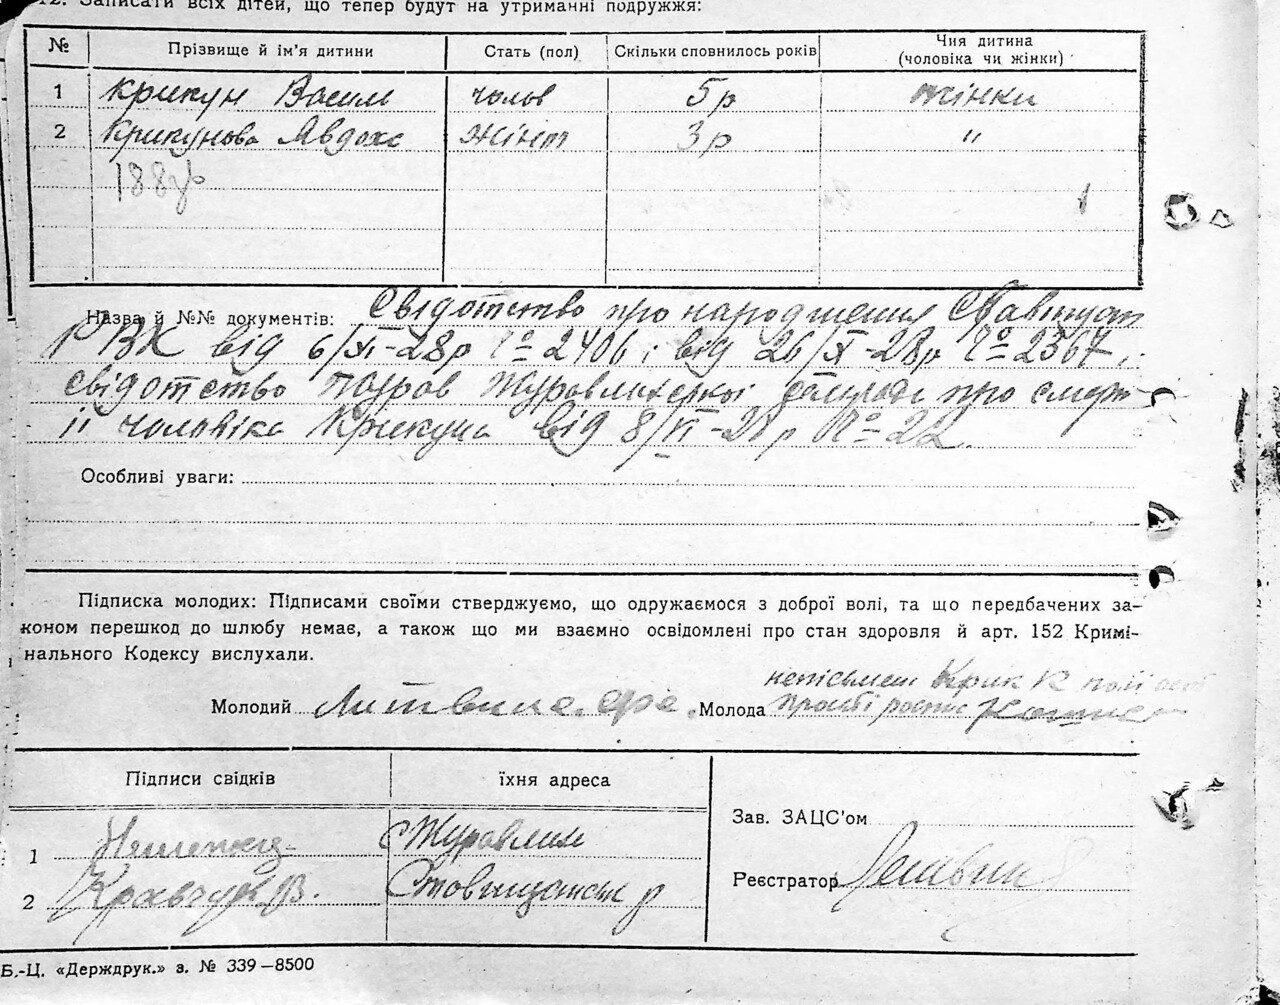 12. Записати всіх дітей, що тепер будут на утриманні подружжя:
№ Прізвище й ім’я дитини Стать (пол) Скільки сповнилось років Чия дитина (чоловіка чи жінки)
1 Крикун Василь чолов 5 р жінки
2 Крикунова Явдоха жіноч 3 р "
188
Назва й №№ документів: Свідотство про народження Ставищан
РВК від 6/XI-28р № 2406 і від 26/X-28р № 2367,
свідотство Журавлихської сільради про смерт
її чоловіка Крикуна від 8/VI-28р № 22.
Особливі уваги:
Підписка молодих: Підписами своїми стверджуємо, що одружаємося з доброї волі, та що передбачених за-
коном перешкод до шлюбу немає, а також що ми взаємно освідомлені про стан здоровля й арт. 152 Кримі-
нального Кодексу вислухали.
неписьмен Крик
Молодий Литвин Молода прозьбі роспис
Підписи свідків їхня адреса
Зав. ЗАЦС’ом
1 с Журавлих
Реєстратор
2 Кравчук В. Ставищанськ р
Б.-Ц. «Держдрук.» з. № 339—8500